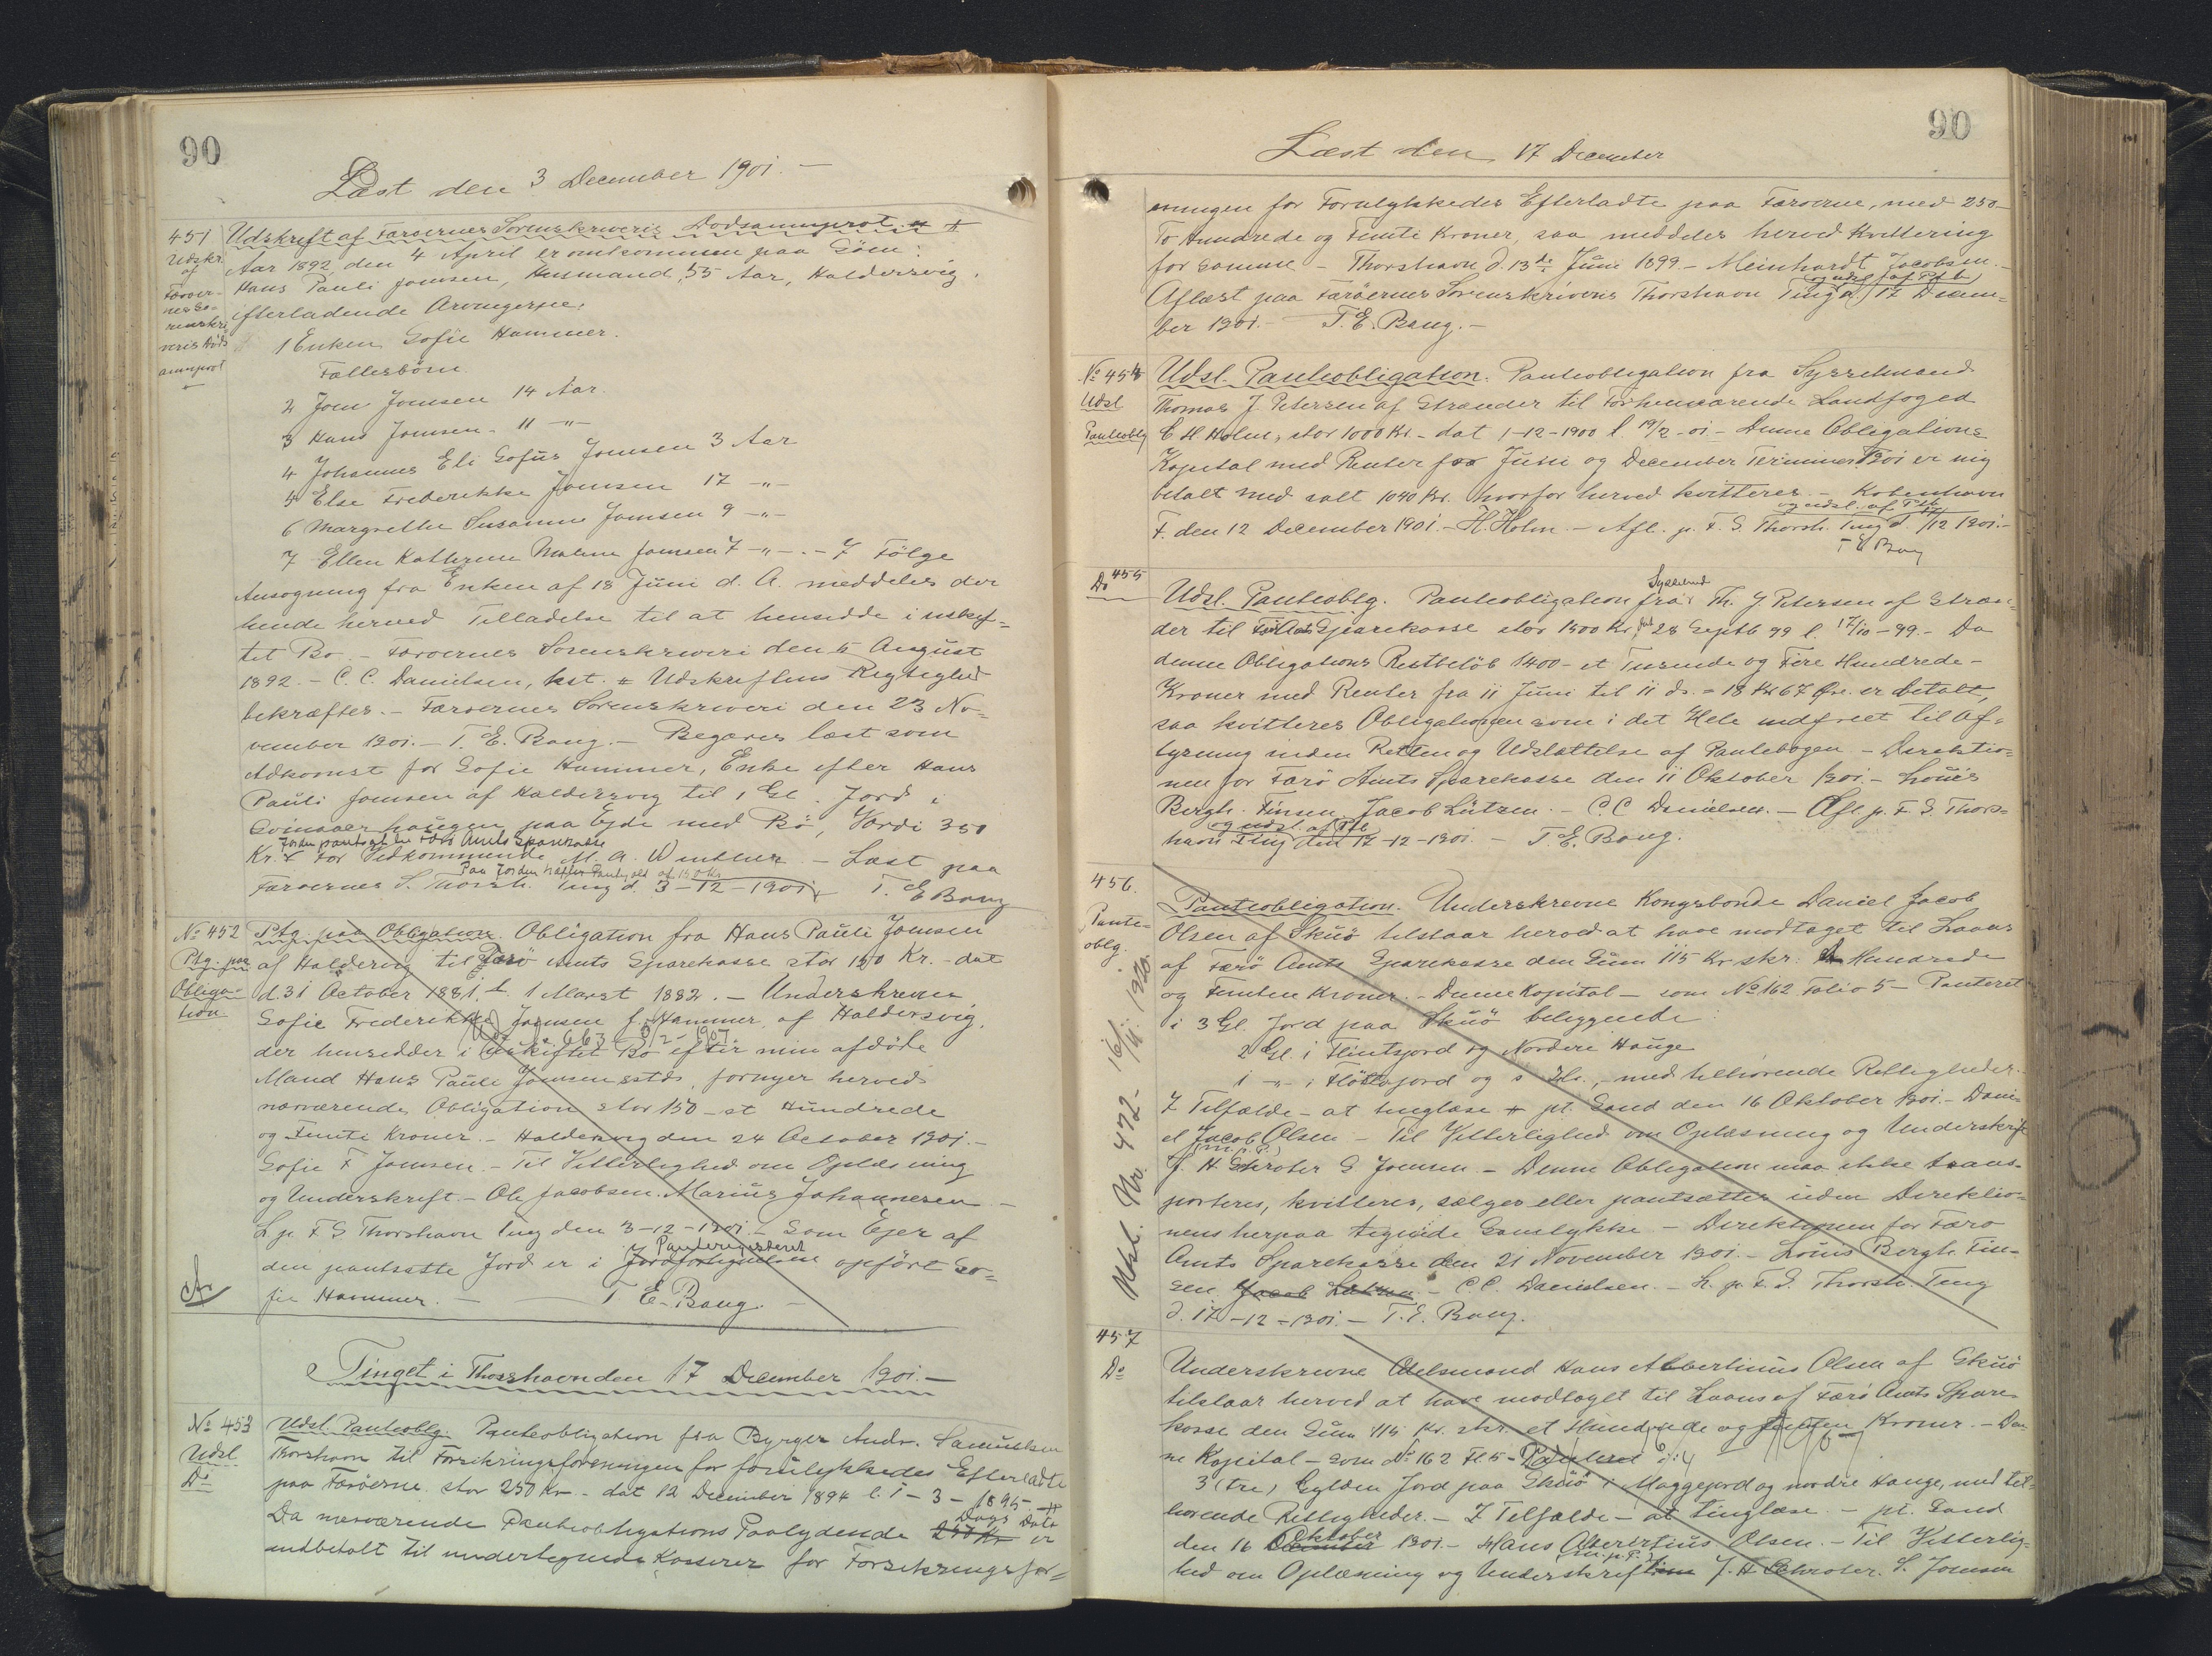 90
Læst den 3 December 1901.-
451
Udskr.
af
Færøer-
nes So-
renskri
veris Døds
anmprot
Udskrift af Færøernes Sorenskriveris Dødsanmprot.
Aar 1892 den 4 April er omkommen paa Søen:
Hans Pauli Joensen, Husmand, 55 Aar, Haldersvig.
Efterladende Arvingerne:
1 Enken Sofie Hammer.
Fællesbörn
2 Joen Joensen 14 Aar.
3 Hans Joensen - 11 -"-
4 Johannes Eli Sofus Joensen 3 Aar
5 Else Frederikke Joensen 17 -"-
6 Margrethe Susanne Joensen 9 -"-
7 Ellen Kathrine Malene Joensen 7 -"- . - I Følge
Ansøgning fra Enken af 18 Juni d. A. meddeles der
hende herved Tilladelse til at hensidde i uskif=
tet Bo. - Færøernes Sorenskriveri den 5 August
1892. - C. C. Danielsen, kst. Udskriftens Rigtighed
bekræftes. - Færøernes Sorenskriveri den 23 No=
vember 1901. - T. E. Bang. - Begæres læst som
Adkomst for Sofie Hammer, Enke efter Hans
Pauli Joensen af Haldersvig til 1 Gl. Jord i
Svinaaerhaugen paa Ejde med Bö, Værdi 350
Jorden pantsat til Færö Amts Sparekasse
Kr. For Vedkommende M. A. Winther - Læst paa
Paa Jorden hæfter Pantegæld af 150 Kr.
Færøernes S. Thorsh. Ting d. 3-12-1901 T. E Bang
No 452
Ptg. paa
Obliga-
tion.
Ptg. paa Obligation. Obligation fra Hans Pauli Joensen
af Haldersvig til Færö Amts Sparekasse stor 150 Kr. - dat
d. 31 October 1881. l. 1 Marst 1882. - Underskrevne
Sofie Frederikke Joensen f. Hammer, af Haldersvig,
Udsl. No. 663 - 3/2-1907.
der hensidder i uskiftet Bo efter min afdøde
Mand Hans Pauli Joensen sstds, fornyer herved
nærværende Obligation stor 150 - et Hundrede
og Femti Kroner. - Haldersvig den 24 October 1901. -
Sofie F Joensen. - Til Vitterlighed om Oplæsning
og Underskrift. - Ole Jacobsen. Marius Johannesen -
L. p. F S Thorshavn Ting den 3-12-1901. - Som Ejer af
Panteregisteret
den pantsatte Jord er i Jordfortegnelsen opført So=
fie Hammer. - T E. Bang. -
Tinget i Thorshavn den 17 December 1901. -
No 453
Udsl
Do
Udsl. Panteoblg. Panteobligation fra Byrger Andr. Samuelsen
Thorshavn til Forsikringsforeningen for forulykkedes Efterladte
paa Færöerne stor 250 Kr. - dat 12 December 1894 l. 5-3-1895.
Dags Dato
Da nærværende Panteobligations Paalydende 250 Kr er
indbetalt til undertegnede Kasserer for Forsikringsfor=
90
Læst den 17 December
eningen for Forulykkedes Efterladte paa Færøerne, med 250
To Hundrede og Femti Kroner, saa meddeles herved Kvittering
for samme - Thorshavn d. 13de Juni 1899. - Meinhardt Jacobsen. -
og udsl. af Ptb
Aflæst paa Færöernes Sorenskriveris Thorshavn Ting d. 17 Decem=
ber 1901. - T. E. Bang. -
No 454
Udsl
Panteoblg
Udsl. Panteobligation. Panteobligation fra Sysselmand
Thomas J. Petersen af Strænder til Forhenværende Landfoged
C H Holm, stor 1000 Kr. - dat 1-12-1900 l. 19/2-01 - Denne Obligations
Kapital med Renter for Juni og December Terminer 1901 er mig
betalt med ialt 1040 Kr. hvorfor herved kvitteres. - København
og udsl. af Ptb
F. den 12 December 1901. - H. Holm. - Afl. p. F. S. Thorsh. Ting d. 17/12 1901. -
T E Bang
455
Do
Sysselmd
Udsl. Panteoblg. Panteobligation fra Th. J. Petersen af Stræn=
der til Færö Amts Sparekasse stor 1500 Kr. dat 28 Septb 99 l. 17/10-99. - Da
denne Obligations Restbelöb 1400 - et Tusende og Fire Hundrede -
Kroner med Renter fra 11 Juni til 11 ds. = 18 Kr 67 Øre. er betalt,
saa kvitteres Obligationen som i det Hele indfriet til Af=
lysning inden Retten og Udslettelse af Pantebogen. - Direktio=
nen for Færö Amts Sparekasse den 11 Oktober 1901 - Louis
Bergh. Finsen Jacob Lützen. - C. C Danielsen. - Afl. p. F. S Thors=
og udsl. af Ptb
havn Ting den 17-12-1901. - T. E. Bang.
456.
Pante-
oblg.
Udsl. Nr. 472 - 16/11 1920.
Panteobligation. Underskrevne Kongsbonde Daniel Jacob
Olsen af Skuö tilstaar herved at have modtaget til Laans
af Færö Amts Sparekasse den Sum 115 Kr skr. Hundrede
og Femten Kroner. - Denne Kapital - som No 162 Folio 5 - Panteret
i 3 Gl. Jord paa Skuö beliggende:
2 Gl. i Flintsjord og Nordere Hauge
1 -"- i Flöttajord og , med tilhörende Rettigheder.
I Tilfælde - at tinglæse pt. Sand den 16 Oktober 1901. - Dani=
el Jacob Olsen - Til Vitterlighed om Oplæsning og Underskrift
(m. p. P.)
J. H. Schrøter S Joensen. - Denne Obligation maa ikke trans=
porteres, kvitteres, sælges eller pantsættes uden Direktio=
nens herpaa tegnede Samtykke. - Direktionen for Færö
Amts Sparekasse den 21 November 1901. - Louis Bergh. Fin=
sen. Jacob Lützen - C C. Danielsen. - L. p. F. S. Thorsh. Ting
d. 17-12-1901. - T. E. Bang.
457
Do
Underskrevne Odelsmand Hans Albertinius Olsen af Skuö
tilstaar herved at have modtaget til Laans af Færö Amts Spare=
kasse den Sum 115 Kr. skr. et Hundrede og femten Kroner. - Den=
ne Kapital - som No 162 Fl. 5 - Panteret i:
3 (tre) Gylden Jord paa Skuö i Maggejord og nordre Hauge, med til=
hørende Rettigheder. - I Tilfælde - at tinglæse. - pt. Sand
Oktober
den 16 December 1901. - Hans Albertinius Olsen. - Til Vitterlig=
(m. p. P.)
hed om Oplæsning og Underskriften J. H Schrøter. S. Joensen